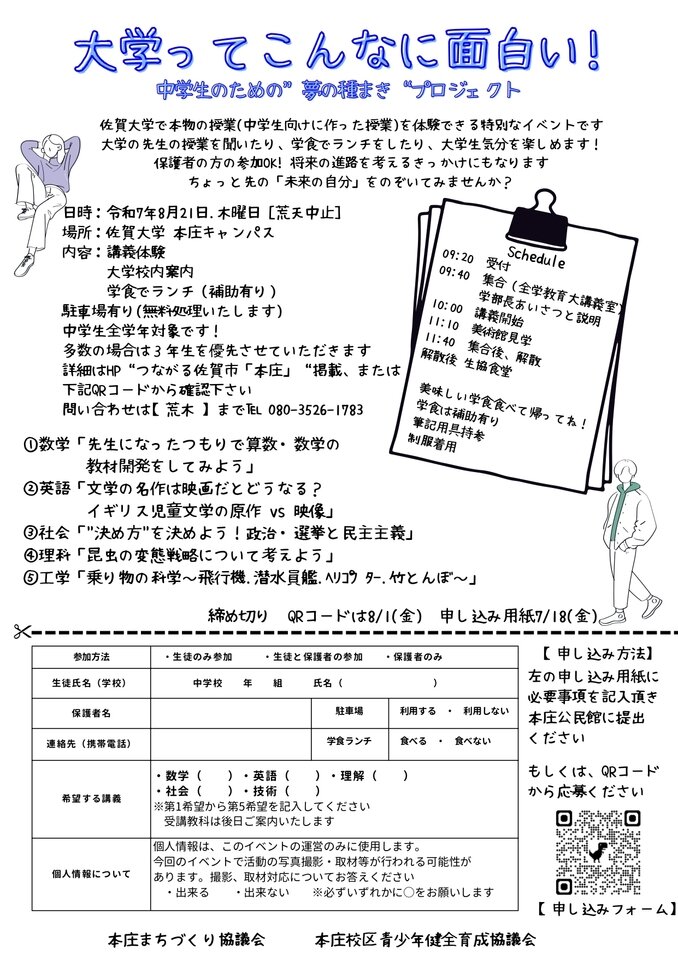 大学ってこんなに面白い!
中学生のための”夢の種まき“プロジェクト
佐賀大学で本物の授業(中学生向けに作った授業)を体験できる特別なイベントです
大学の先生の授業を聞いたり、学食でランチをしたり、大学生気分を楽しめます！
保護者の方の参加OK! 将来の進路を考えるきっかけにもなります
ちょっと先の「未来の自分」をのぞいてみませんか？
日時：令和7年8月21日.木曜日［荒天中止］
場所：佐賀大学 本庄キャンパス
内容：講義体験
大学校内案内
学食でランチ（補助有り）
駐車場有り(無料処理いたします)
中学生全学年対象です！
多数の場合は３年生を優先させていただきます
詳細はHP“つながる佐賀市「本庄」“掲載、または
下記QRコードから確認下さい
問い合わせは【 荒木 】まで℡ 080-3526-1783
Schedule
09:20 受付
09:40 集合（全学教育大講義室）
学部長あいさつと説明
10:00 講義開始
11:10 美術館見学
11:40 集合後、解散
解散後 生協食堂
美味しい学食食べて帰ってね！
学食は補助有り
筆記用具持参
制服着用
①数学「先生になったつもりで算数・数学の
教材開発をしてみよう」
②英語「文学の名作は映画だとどうなる？
イギリス児童文学の原作 vs 映像」
③社会「"決め方"を決めよう！政治・選挙と民主主義」
④理科「昆虫の変態戦略について考えよう」
⑤工学「乗り物の科学～飛行機.潜水員艦.ﾍﾘｺﾌﾟﾀｰ.竹とんぼ～」
締め切り QRコードは8/1(金) 申し込み用紙7/18(金)
参加方法 ・生徒のみ参加 ・生徒と保護者の参加 ・保護者のみ
生徒氏名（学校） 中学校 年 組 氏名（ ）
保護者名 駐車場 利用する ・ 利用しない
連絡先（携帯電話） 学食ランチ 食べる ・ 食べない
希望する講義
・数学（ ）・英語（ ）・理解（ ）
・社会（ ）・技術（ ）
※第1希望から第5希望を記入してください
受講教科は後日ご案内いたします
個人情報について
個人情報は、このイベントの運営のみに使用します。
今回のイベントで活動の写真撮影・取材等が行われる可能性が
あります。撮影、取材対応についてお答えください
・出来る ・出来ない ※必ずいずれかに○をお願いします
【 申し込み方法】
左の申し込み用紙に
必要事項を記入頂き
本庄公民館に提出
ください
もしくは、QRコード
から応募ください
【 申し込みフォーム】
本庄まちづくり協議会 本庄校区青少年健全育成協議会